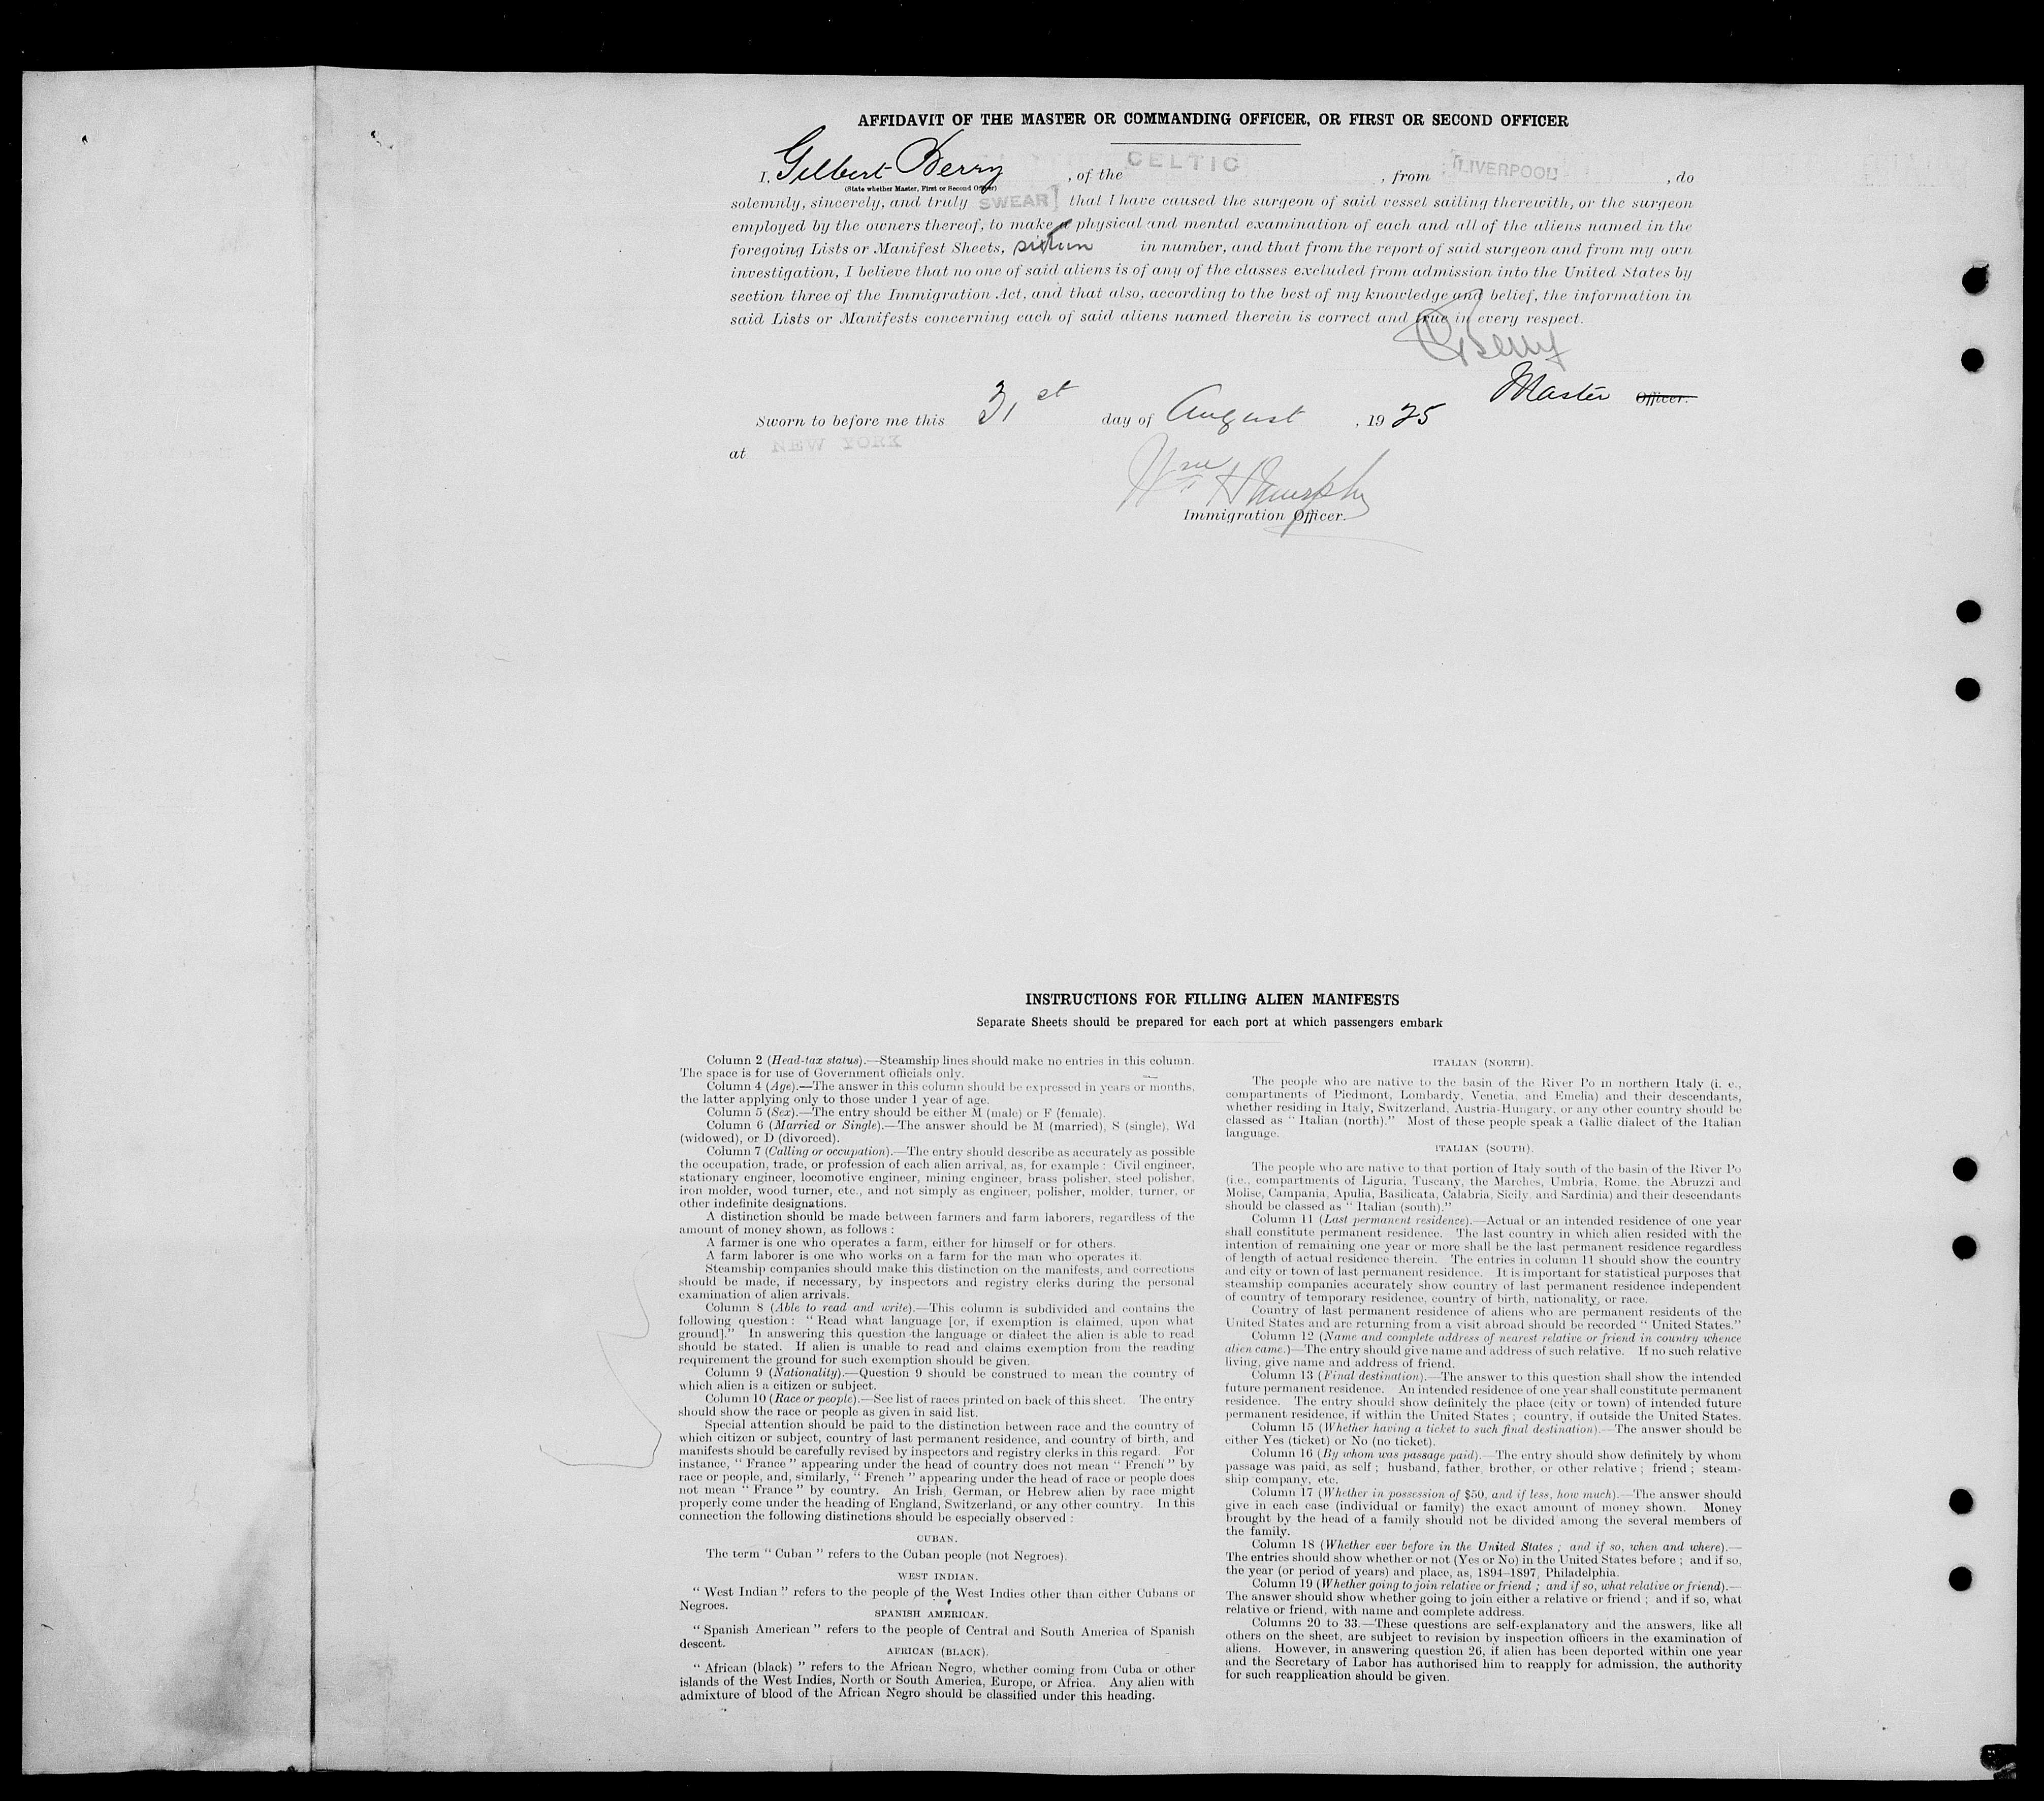 AFFIDAVIT OF THE MASTER OR COMMANDING OFFICER, OR FIRST OR SECOND OFFICER
I, Gilbert Berry, of the CELTIC, from LIVERPOOL, do
(State whether Master, First or Second Officer)
solemnly, sincerely, and truly SWEAR] that I have caused the surgeon of said vessel sailing therewith, or the surgeon
employed by the owners thereof, to make a physical and mental examination of each and all of the aliens named in the
foregoing Lists or Manifest Sheets, sixteen in number, and that from the report of said surgeon and from my own
investigation, I believe that no one of said aliens is of any of the classes excluded from admission into the United States by
section three of the Immigration Act, and that also, according to the best of my knowledge and belief, the information in
said Lists or Manifests concerning each of said aliens named therein is correct and true in every respect.
G Berry
Master Officer.
Sworn to before me this 31st day of August, 1925
at NEW YORK
Wm H Murphy
Immigration Officer.
INSTRUCTIONS FOR FILLING ALIEN MANIFESTS
Separate Sheets should be prepared for each port at which passengers embark
Column 2 (Head-tax status).—Steamship lines should make no entries in this column.
The space is for use of Government officials only.
Column 4 (Age).—The answer in this column should be expressed in years or months,
the latter applying only to those under 1 year of age.
Column 5 (Sex).—The entry should be either M (male) or F (female).
Column 6 (Married or Single).—The answer should be M (married), S (single), Wd
(widowed), or D (divorced).
Column 7 (Calling or occupation).—The entry should describe as accurately as possible
the occupation, trade, or profession of each alien arrival, as, for example : Civil engineer,
stationary engineer, locomotive engineer, mining engineer, brass polisher, steel polisher,
iron molder, wood turner, etc., and not simply as engineer, polisher, molder, turner, or
other indefinite designations.
A distinction should be made between farmers and farm laborers, regardless of the
amount of money shown, as follows :
A farmer is one who operates a farm, either for himself or for others.
A farm laborer is one who works on a farm for the man who operates it.
Steamship companies should make this distinction on the manifests, and corrections
should be made, if necessary, by inspectors and registry clerks during the personal
examination of alien arrivals.
Column 8 (Able to read and write).—This column is subdivided and contains the
following question : " Read what language [or, if exemption is claimed, upon what
ground]." In answering this question the language or dialect the alien is able to read
should be stated. If alien is unable to read and claims exemption from the reading
requirement the ground for such exemption should be given.
Column 9 (Nationality).—Question 9 should be construed to mean the country of
which alien is a citizen or subject.
Column 10 (Race or people).—See list of races printed on back of this sheet. The entry
should show the race or people as given in said list.
Special attention should be paid to the distinction between race and the country of
which citizen or subject, country of last permanent residence, and country of birth, and
manifests should be carefully revised by inspectors and registry clerks in this regard. For
instance, " France " appearing under the head of country does not mean " French " by
race or people, and, similarly, " French " appearing under the head of race or people does
not mean " France " by country. An Irish, German, or Hebrew alien by race might
properly come under the heading of England, Switzerland, or any other country. In this
connection the following distinctions should be especially observed :
CUBAN.
The term " Cuban " refers to the Cuban people (not Negroes).
WEST INDIAN.
" West Indian " refers to the people of the West Indies other than either Cubans or
Negroes.
SPANISH AMERICAN.
" Spanish American " refers to the people of Central and South America of Spanish
descent.
AFRICAN (BLACK).
" African (black) " refers to the African Negro, whether coming from Cuba or other
islands of the West Indies, North or South America, Europe, or Africa. Any alien with
admixture of blood of the African Negro should be classified under this heading.
ITALIAN (NORTH).
The people who are native to the basin of the River Po in northern Italy (i. e.,
compartments of Piedmont, Lombardy, Venetia, and Emelia) and their descendants,
whether residing in Italy, Switzerland, Austria-Hungary, or any other country should be
classed as " Italian (north)." Most of these people speak a Gallic dialect of the Italian
language.
ITALIAN (SOUTH).
The people who are native to that portion of Italy south of the basin of the River Po
(i.e., compartments of Liguria, Tuscany, the Marches, Umbria, Rome, the Abruzzi and
Molise, Campania, Apulia, Basilicata, Calabria, Sicily, and Sardinia) and their descendants
should be classed as " Italian (south)."
Column 11 (Last permanent residence).—Actual or an intended residence of one year
shall constitute permanent residence. The last country in which alien resided with the
intention of remaining one year or more shall be the last permanent residence regardless
of length of actual residence therein. The entries in column 11 should show the country
and city or town of last permanent residence. It is important for statistical purposes that
steamship companies accurately show country of last permanent residence independent
of country of temporary residence, country of birth, nationality, or race.
Country of last permanent residence of aliens who are permanent residents of the
United States and are returning from a visit abroad should be recorded " United States."
Column 12 (Name and complete address of nearest relative or friend in country whence
alien came.)—The entry should give name and address of such relative. If no such relative
living, give name and address of friend.
Column 13 (Final destination).—The answer to this question shall show the intended
future permanent residence. An intended residence of one year shall constitute permanent
residence. The entry should show definitely the place (city or town) of intended future
permanent residence, if within the United States ; country, if outside the United States.
Column 15 (Whether having a ticket to such final destination).—The answer should be
either Yes (ticket) or No (no ticket).
Column 16 (By whom was passage paid).—The entry should show definitely by whom
passage was paid, as self ; husband, father, brother, or other relative ; friend ; steam-
ship company, etc.
Column 17 (Whether in possession of $50, and if less, how much).—The answer should
give in each case (individual or family) the exact amount of money shown. Money
brought by the head of a family should not be divided among the several members of
the family.
Column 18 (Whether ever before in the United States ; and if so, when and where).—
The entries should show whether or not (Yes or No) in the United States before ; and if so,
the year (or period of years) and place, as, 1894–1897, Philadelphia.
Column 19 (Whether going to join relative or friend ; and if so, what relative or friend).—
The answer should show whether going to join either a relative or friend ; and if so, what
relative or friend, with name and complete address.
Columns 20 to 33.—These questions are self-explanatory and the answers, like all
others on the sheet, are subject to revision by inspection officers in the examination of
aliens. However, in answering question 26, if alien has been deported within one year
and the Secretary of Labor has authorised him to reapply for admission, the authority
for such reapplication should be given.